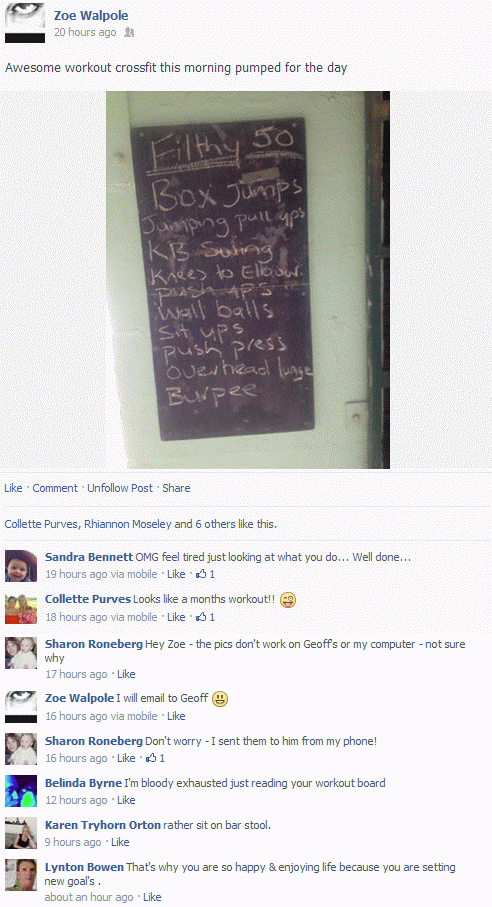 Zoe Walpole
20 hours ago
Awesome workout crossfit this morning pumped for the day
Filthy 50
Box Jumps
Jumping pull ups
KB Swing
Knees to Elbow
push ups
Wall balls
Sit ups
push press
overhead lunge
Burpee
Like · Comment · Unfollow Post · Share
Collette Purves, Rhiannon Moseley and 6 others like this.
Sandra Bennett OMG feel tired just looking at what you do... Well done...
19 hours ago via mobile · Like · 1
Collette Purves Looks like a months workout!!
18 hours ago via mobile · Like · 1
Sharon Roneberg Hey Zoe - the pics don't work on Geoff's or my computer - not sure
why
17 hours ago · Like
Zoe Walpole I will email to Geoff
16 hours ago via mobile · Like
Sharon Roneberg Don't worry - I sent them to him from my phone!
16 hours ago · Like · 1
Belinda Byrne I'm bloody exhausted just reading your workout board
12 hours ago · Like
Karen Tryhorn Orton rather sit on bar stool.
9 hours ago · Like
Lynton Bowen That's why you are so happy & enjoying life because you are setting
new goal's .
about an hour ago · Like